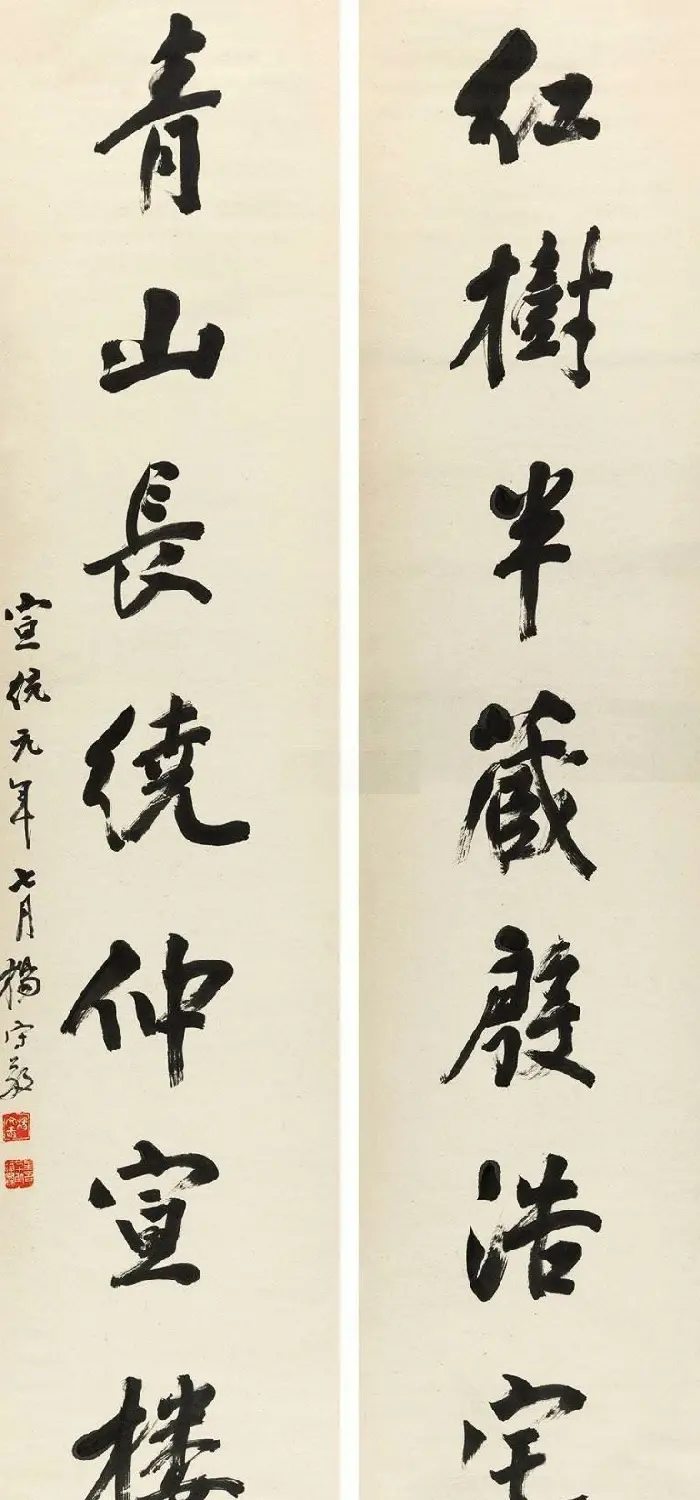 红樹半藏殷浩宅
青山長繞仲宣楼
宣統元年七月楊守敬